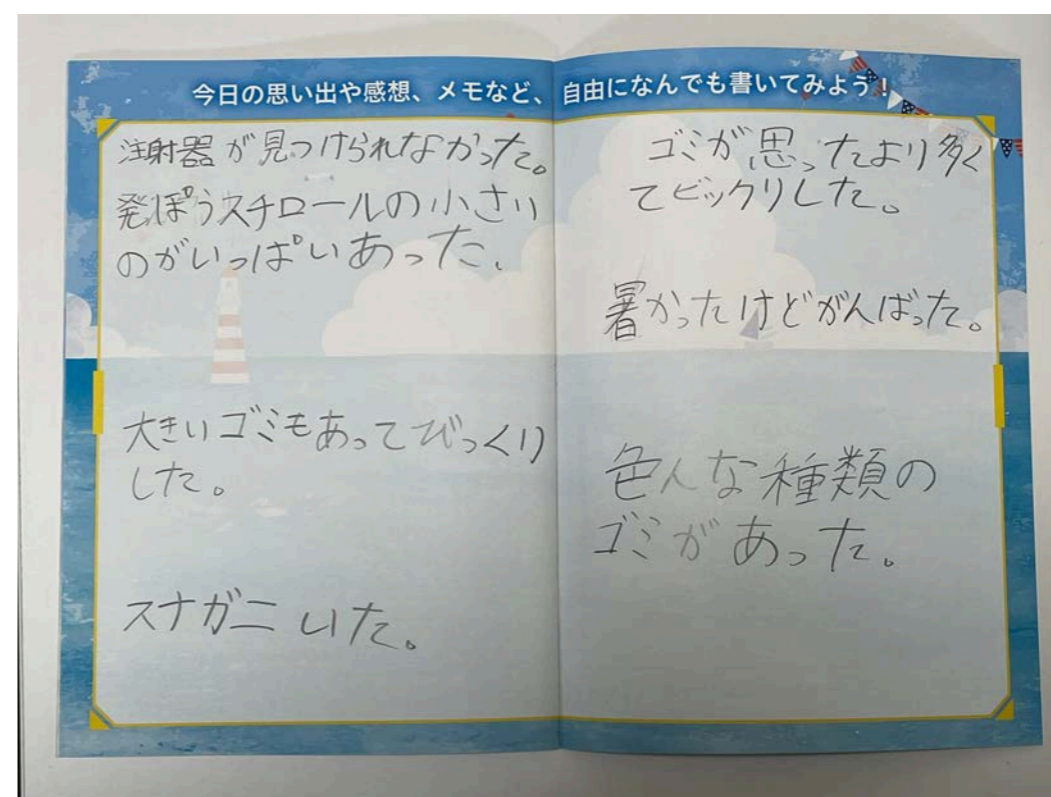 今日の思い出や感想、メモなど、自由になんでも書いてみよう！
注射器が見つけられなかった。
発ぽうスチロールの小さい
のがいっぱいあった、
大きいゴミもあってびっくり
した。
スナガニいた。
ゴミが思ったより多く
てビックリした。
暑かったけどがんばった。
色んな種類の
ゴミがあった。